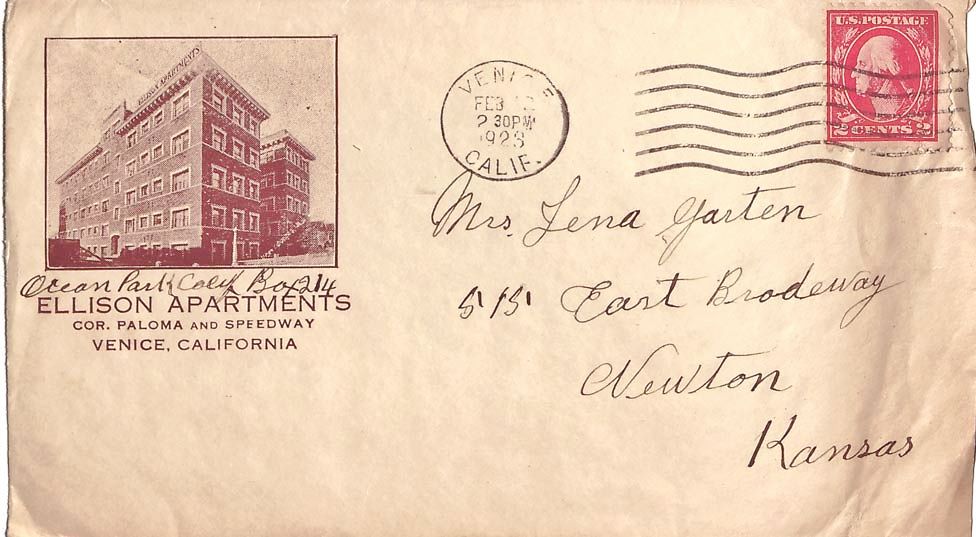 ELLISON APARTMENTS
Ocean Park Calif Box 214
ELLISON APARTMENTS
COR. PALOMA AND SPEEDWAY
VENICE, CALIFORNIA
VENICE
FEB 12
2 30PM
1923
CALIF.
U.S. POSTAGE
2 CENTS 2
Mrs. Lena Garten
515 East Brodeway
Newton
Kansas